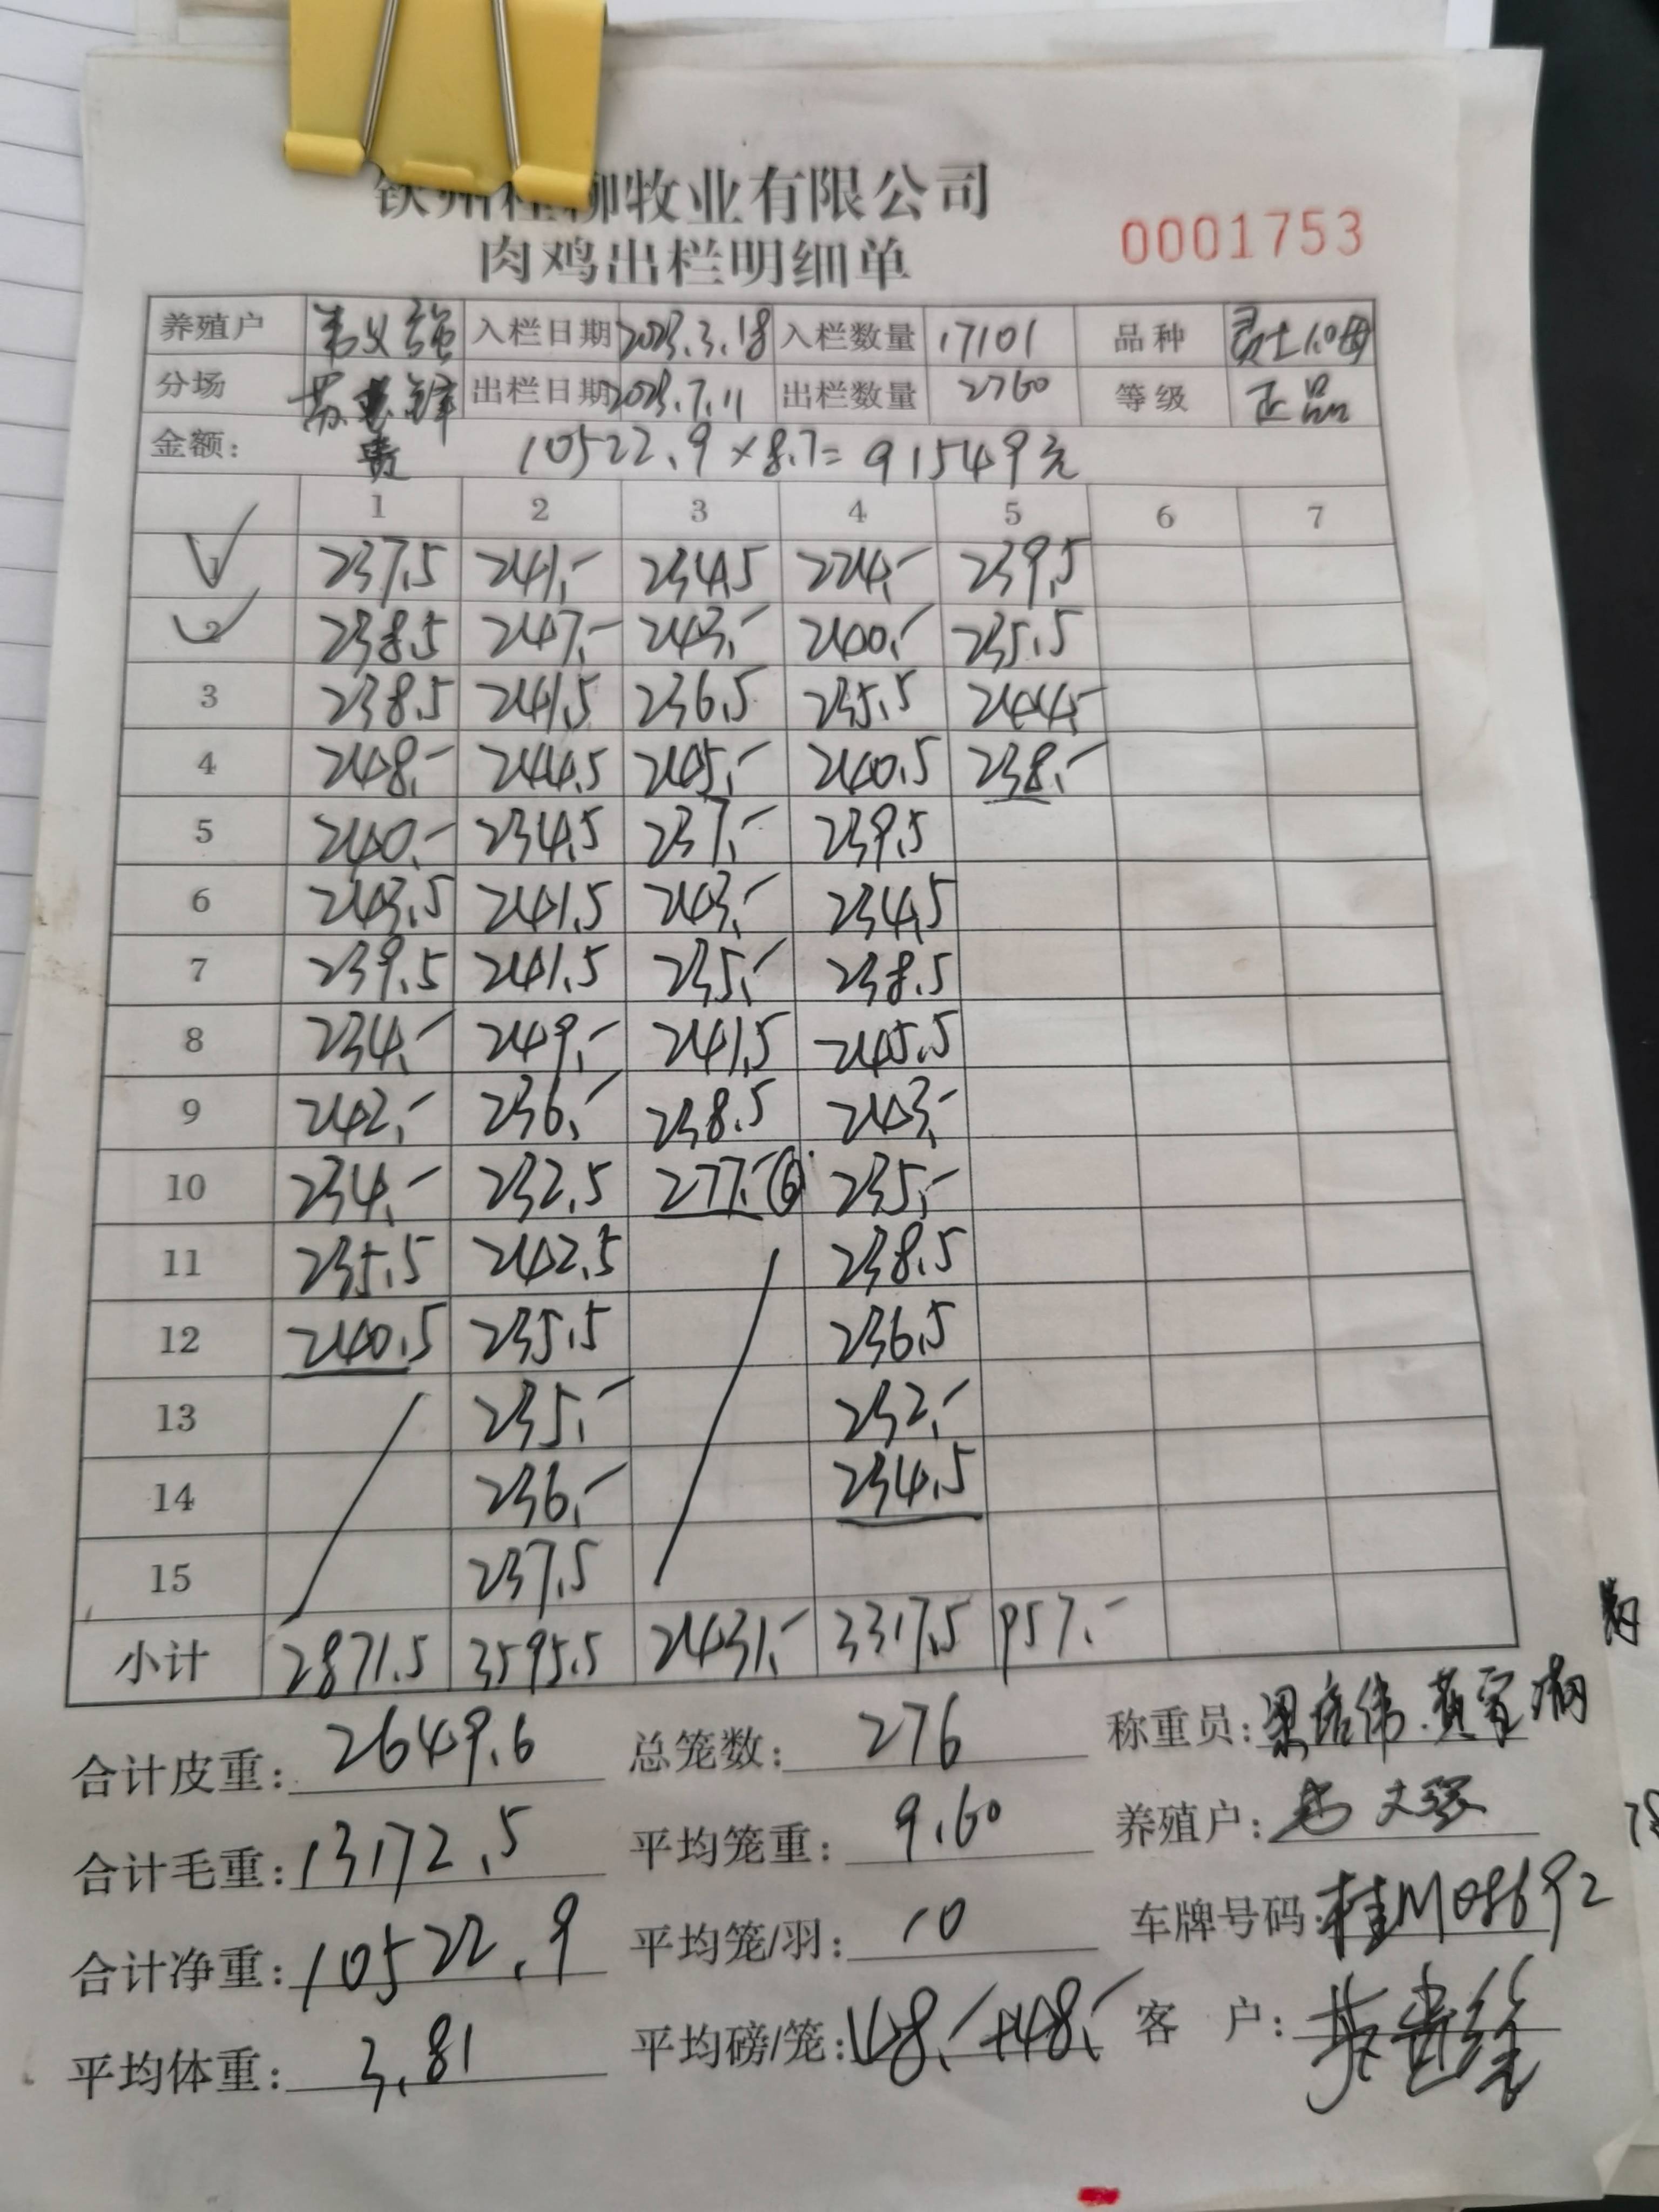 牧业有限公司
肉鸡出栏明细单 0001753
养殖户 韦义强 入栏日期 2023.3.18 入栏数量 17101 品种
分场 出栏日期 2023.7.11 出栏数量 2760 等级 正品
金额: 10522.9×8.7=91549元
1 2 3 4 5 6 7
1 237.5 241.- 234.5 224.- 239.5
2 238.5 247.- 243.- 240.- 235.5
3 238.5 241.5 236.5 235.5 244.-
4 248.- 244.5 245.- 240.5 238.-
5 240.- 234.5 237.- 239.5
6 243.5 241.5 243.- 234.5
7 239.5 241.5 235.- 238.5
8 234.- 249.- 241.5 245.5
9 242.- 236.- 238.5 243.-
10 234.- 232.5 277.- ⑥ 235.-
11 235.5 242.5 238.5
12 240.5 235.5 236.5
13 235.- 232.-
14 236.- 234.5
15 237.5
小计 2871.5 3595.5 2431.- 3317.5 957.-
合计皮重: 2649.6 总笼数: 276 称重员:
合计毛重: 13172.5 平均笼重: 9.60 养殖户: 韦义强
合计净重: 10522.9 平均笼/羽: 10 车牌号码: 桂M08692
平均体重: 3.81 平均磅/笼: 客户: